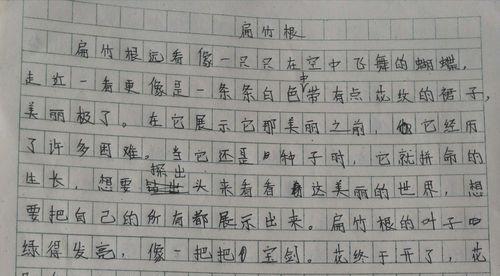 扁竹根
扁竹根远看像一只只在空中飞舞的蝴蝶,
走近一看更像是一条条白色中带有点花纹的裙子,
美丽极了。在它展示它那美丽之前,它经历
了许多困难。当它还是种子时,它就拼命的
生长,想要探出头来看看这美丽的世界,想
要把自己的所有都展示出来。扁竹根的叶子
绿得发亮,像一把把宝剑。花终于开了,花